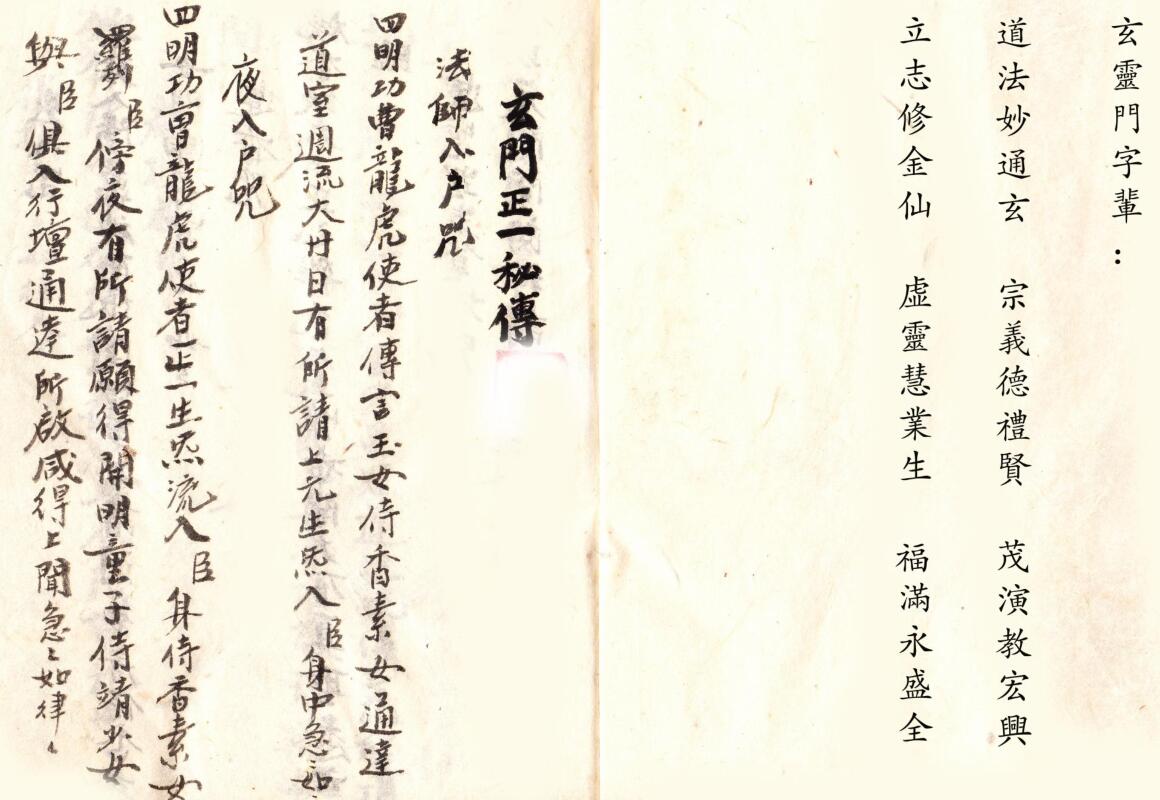 玄靈門字輩：
道法妙通玄　宗義德禮賢　茂演教宏興
立志修金仙　虛靈慧業生　福滿永盛全
玄門正一秘傳
法師入户咒
四明功曹龍虎使者傳言玉女侍香素女通達
道室週流大廿日有所請上元生炁入臣身中急〻如
夜入户咒
四明功曹龍虎使者正一生炁流入臣身侍香素女
羅列臣傍夜有所請願得開明童子侍靖少女
與臣俱入行壇通達所啟咸得上聞急〻如律〻